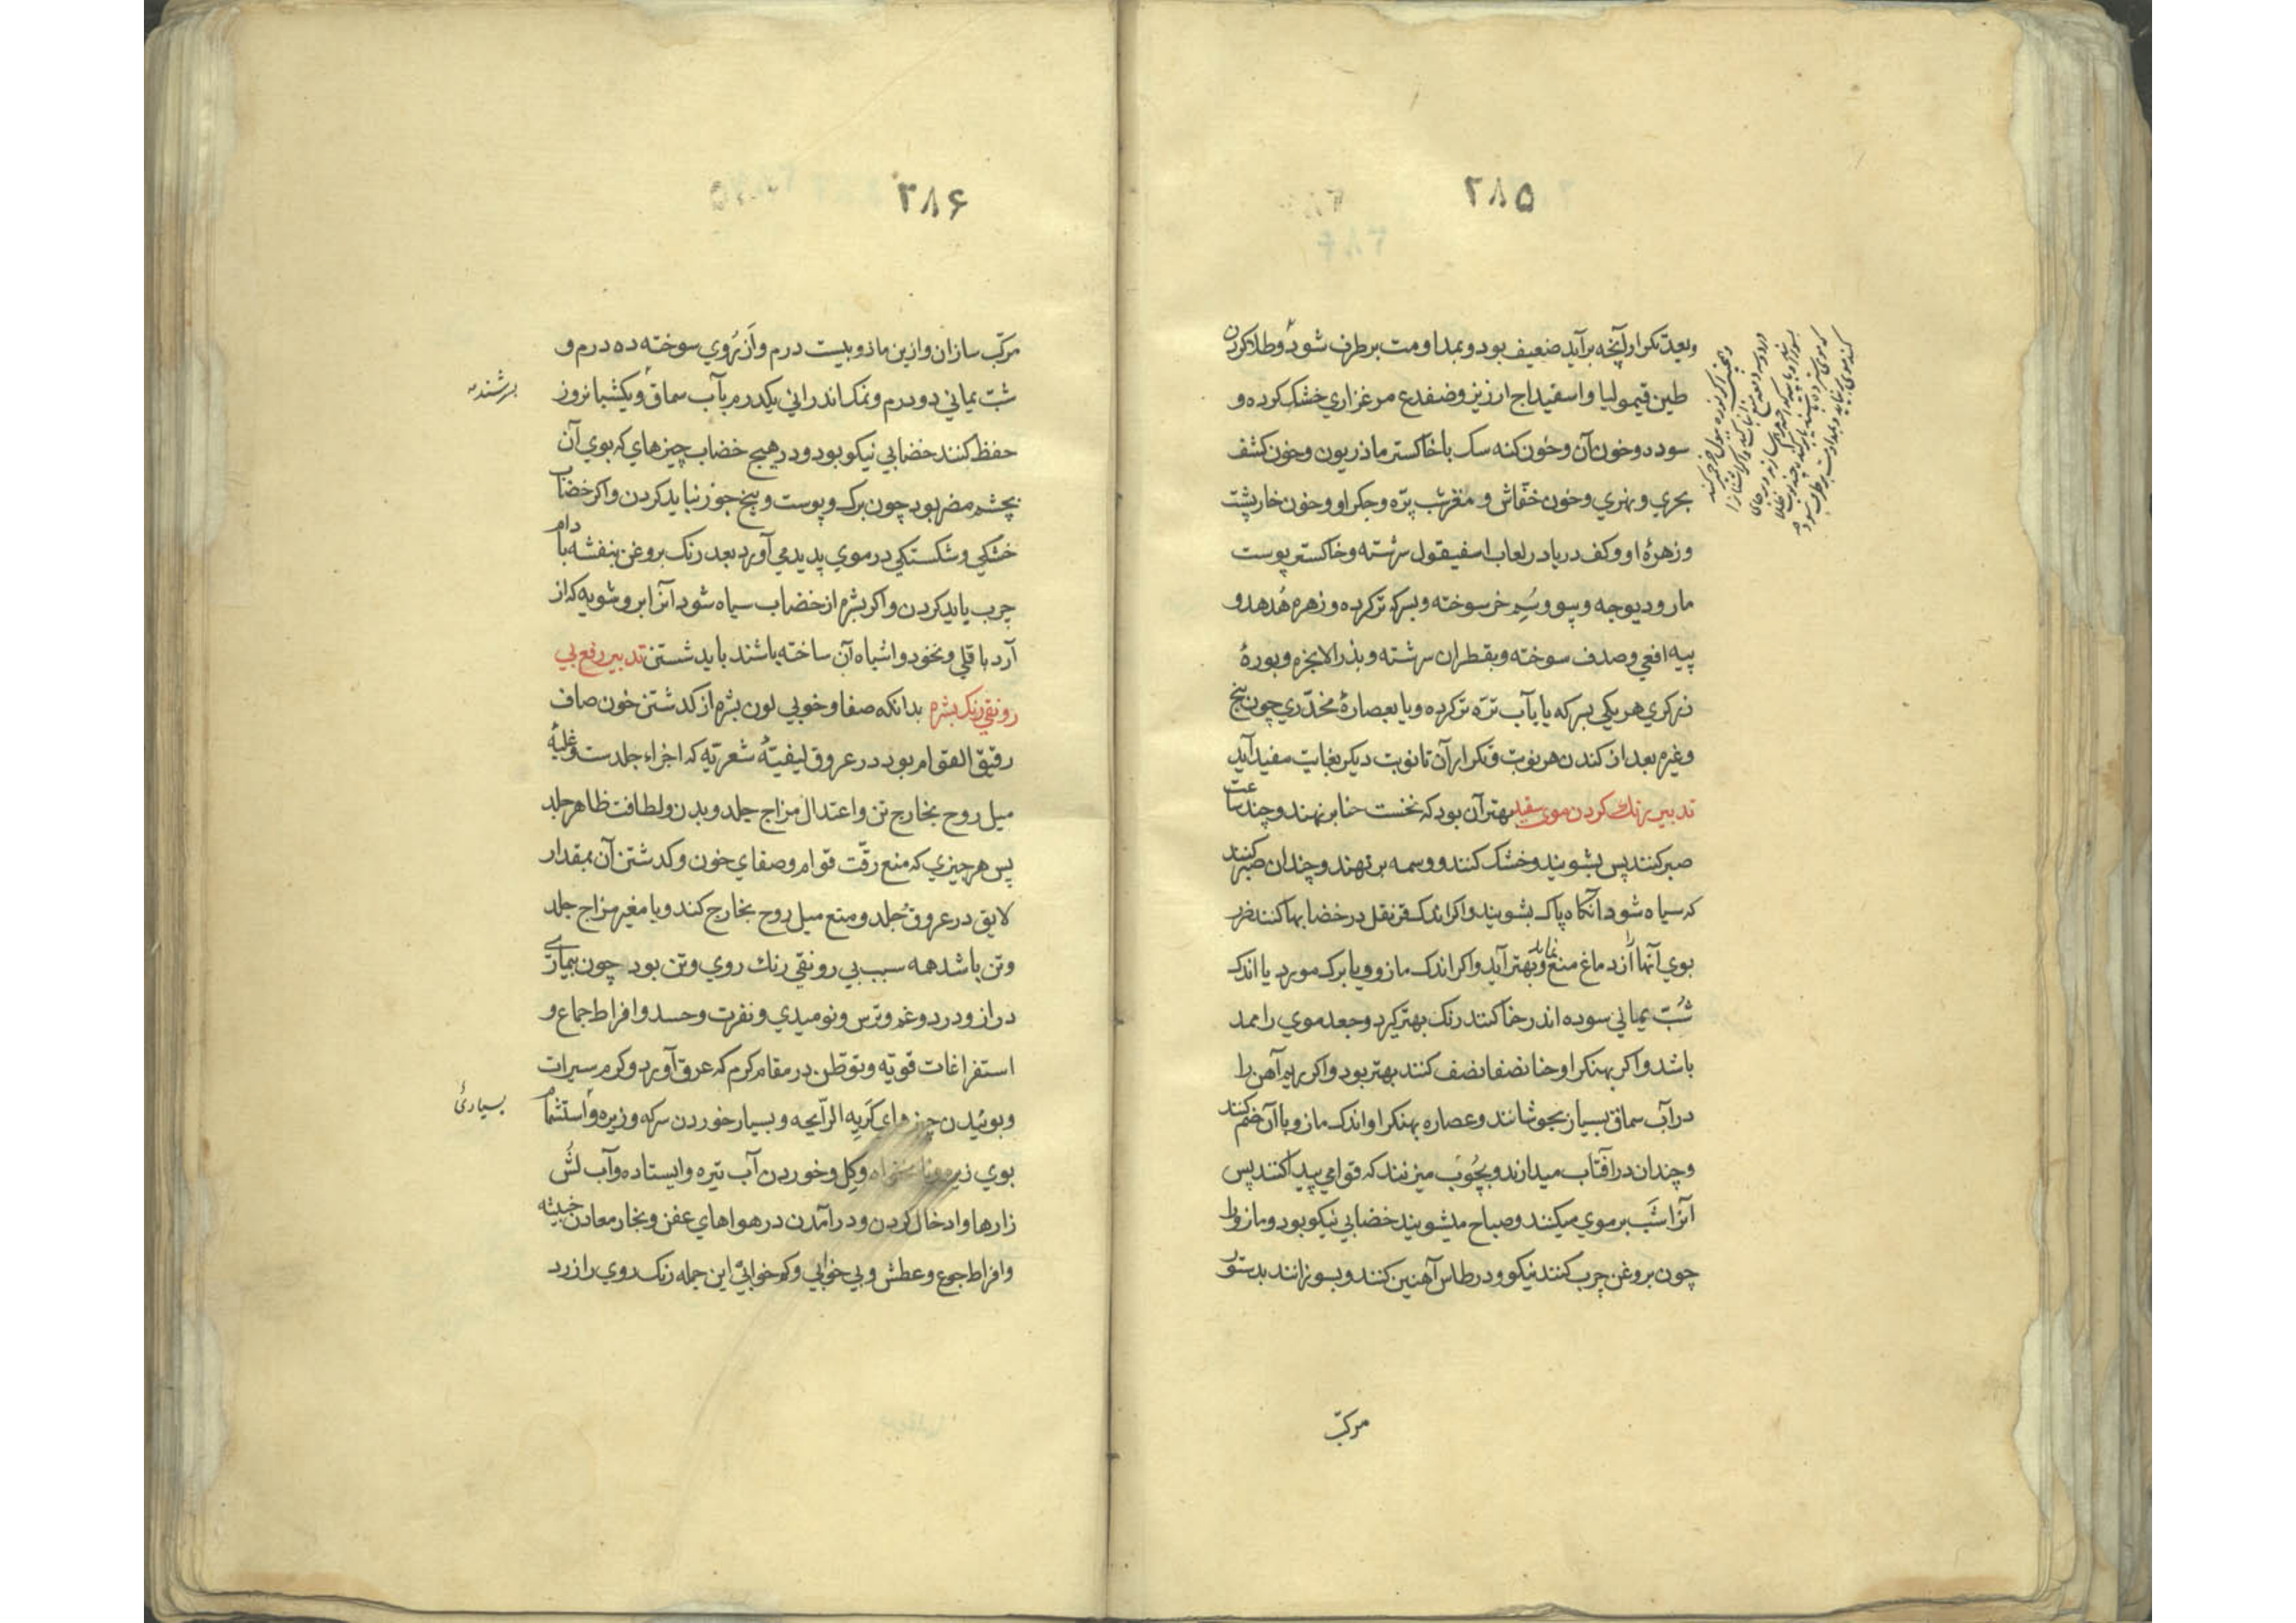 ۲۸۵
وبعد تکرار آنچه برآید ضعیف بود و بمداومت برطرف شود و طلا کردن
طین قیمولیا و اسفیداج ارزیز و ضفدع مرغزاری خشک کرده و
سوده و خون آن و خون کنه سک با خاکستر ماذریون و خون کشف
بحری و نهری و خون خفّاش و مغز سر بزه و جکر او و خون خارپشت
و زهرهٔ او و کف دریا در لعاب اسفیقول سرشته و خاکستر پوست
مار و دیوجه و پیو و سُمِ خر سوخته و بسرکه تر کرده و زهره هُدهد و
پیه افعی و صدف سوخته و بقطران سرشته و بذر الانجزه و بورهٔ
زرکری هر یکی بسرکه یا بآب ترّه تر کرده و یا بعصارهٔ مخدّری چون بنج
وغیره بعد از کندن هر نوبت و تکرار آن تا نوبت دیکر بغایت مفید آید
تدبیر رنک کردن موی سفید بهتر آن بود که نخست حنا برنهند و چند ساعت
صبر کنند پس بشویند و خشک کنند و وسمه برنهند و چندان صبر کنند
که سیاه شود آنکاه پاک بشویند و اکر اندک قرنفل در خضابها کنند ضرر
بوی آنها را از دماغ منع نماید و بهتر آید و اکر اندک مازو و یا برک مورد یا اندک
شبّ یمانی سوده اندر حنا کنند رنک بهتر کیرد و جعد موی را ممد
باشد و اکر بهنکر او حنا نصفا نصف کنند بهتر بود و اکر ریم آهن را
در آب سماق بسیار بجوشانند و عصاره بهنکر او اندک مازو با آن ضم کنند
و چندان در آفتاب میدارند و بچُوب میزنند که قوامی پیدا کنند پس
آنرا شَب بر موی میکنند و صباح میشویند خضابی نیکو بود و مازو را
چون بروغن چرب کنند نیکو و در طاس آهنین کنند و بسوزانند بدستور
مرکّب
۲۸۶
مرکّب سازان و ازین مازو بیست درم و از رُوی سوخته ده درم و
شبّ یمانی دو درم و نمک اندرانی یکدرم بآب سماق و یکشبانروز
برشندمه
حفظ کنند خضابی نیکو بود و در هیچ خضاب چیزهای که بوی آن
بچشم مضر بود چون برک و پوست و بیخ جوز نباید کردن و اکر خضاب
خشکی و شکستکی در موی پدید می آورد بعد رنک بروغن بنفشه بادام
چرب باید کردن و اکر بشره از خضاب سیاه شود آنرا بروشویه که از
آرد باقلی و نخود و اشباه آن ساخته باشند باید شستن تدبیر رفع بی
رونقی رنک بشره بدانکه صفا و خوبی لون بشره از کدشتن خون صاف
رقیق القوام بود در عروق لیفیّهٔ شعریّه که اجزاء جلدست و غلبهٔ
میل روح بخارج تن و اعتدال مزاج جلد و بدن و لطافت ظاهر جلد
پس هر چیزی که منع رقّت قوام و صفای خون و کدشتن آن بمقدار
لایق در عروق جلد و منع میل روح بخارج کند و یا مغیر مزاج جلد
و تن باشد همه سبب بی رونقی رنک روی و تن بود چون بیماری
دراز و درد و غم و ترس و نومیدی و نفرت و حسد و افراط جماع و
استفراغات قویّه و توطّن در مقام کرم که عرق آورد و کرم سیرات
و بوئیدن چیزهای کریه الرّایحه و بسیار خوردن سرکه و زیره و استشمام
بسیاریٔ
بوی زیره و نانخواه و کِل و خوردن آب تیره و ایستاده و آب لُش
زارها و ادخال کردن و درآمدن در هواهای عفن و بخار معادن خبیثه
و افراط جوع و عطش و بی خوابی و کم خوابیٔ این جمله رنک روی را زرد